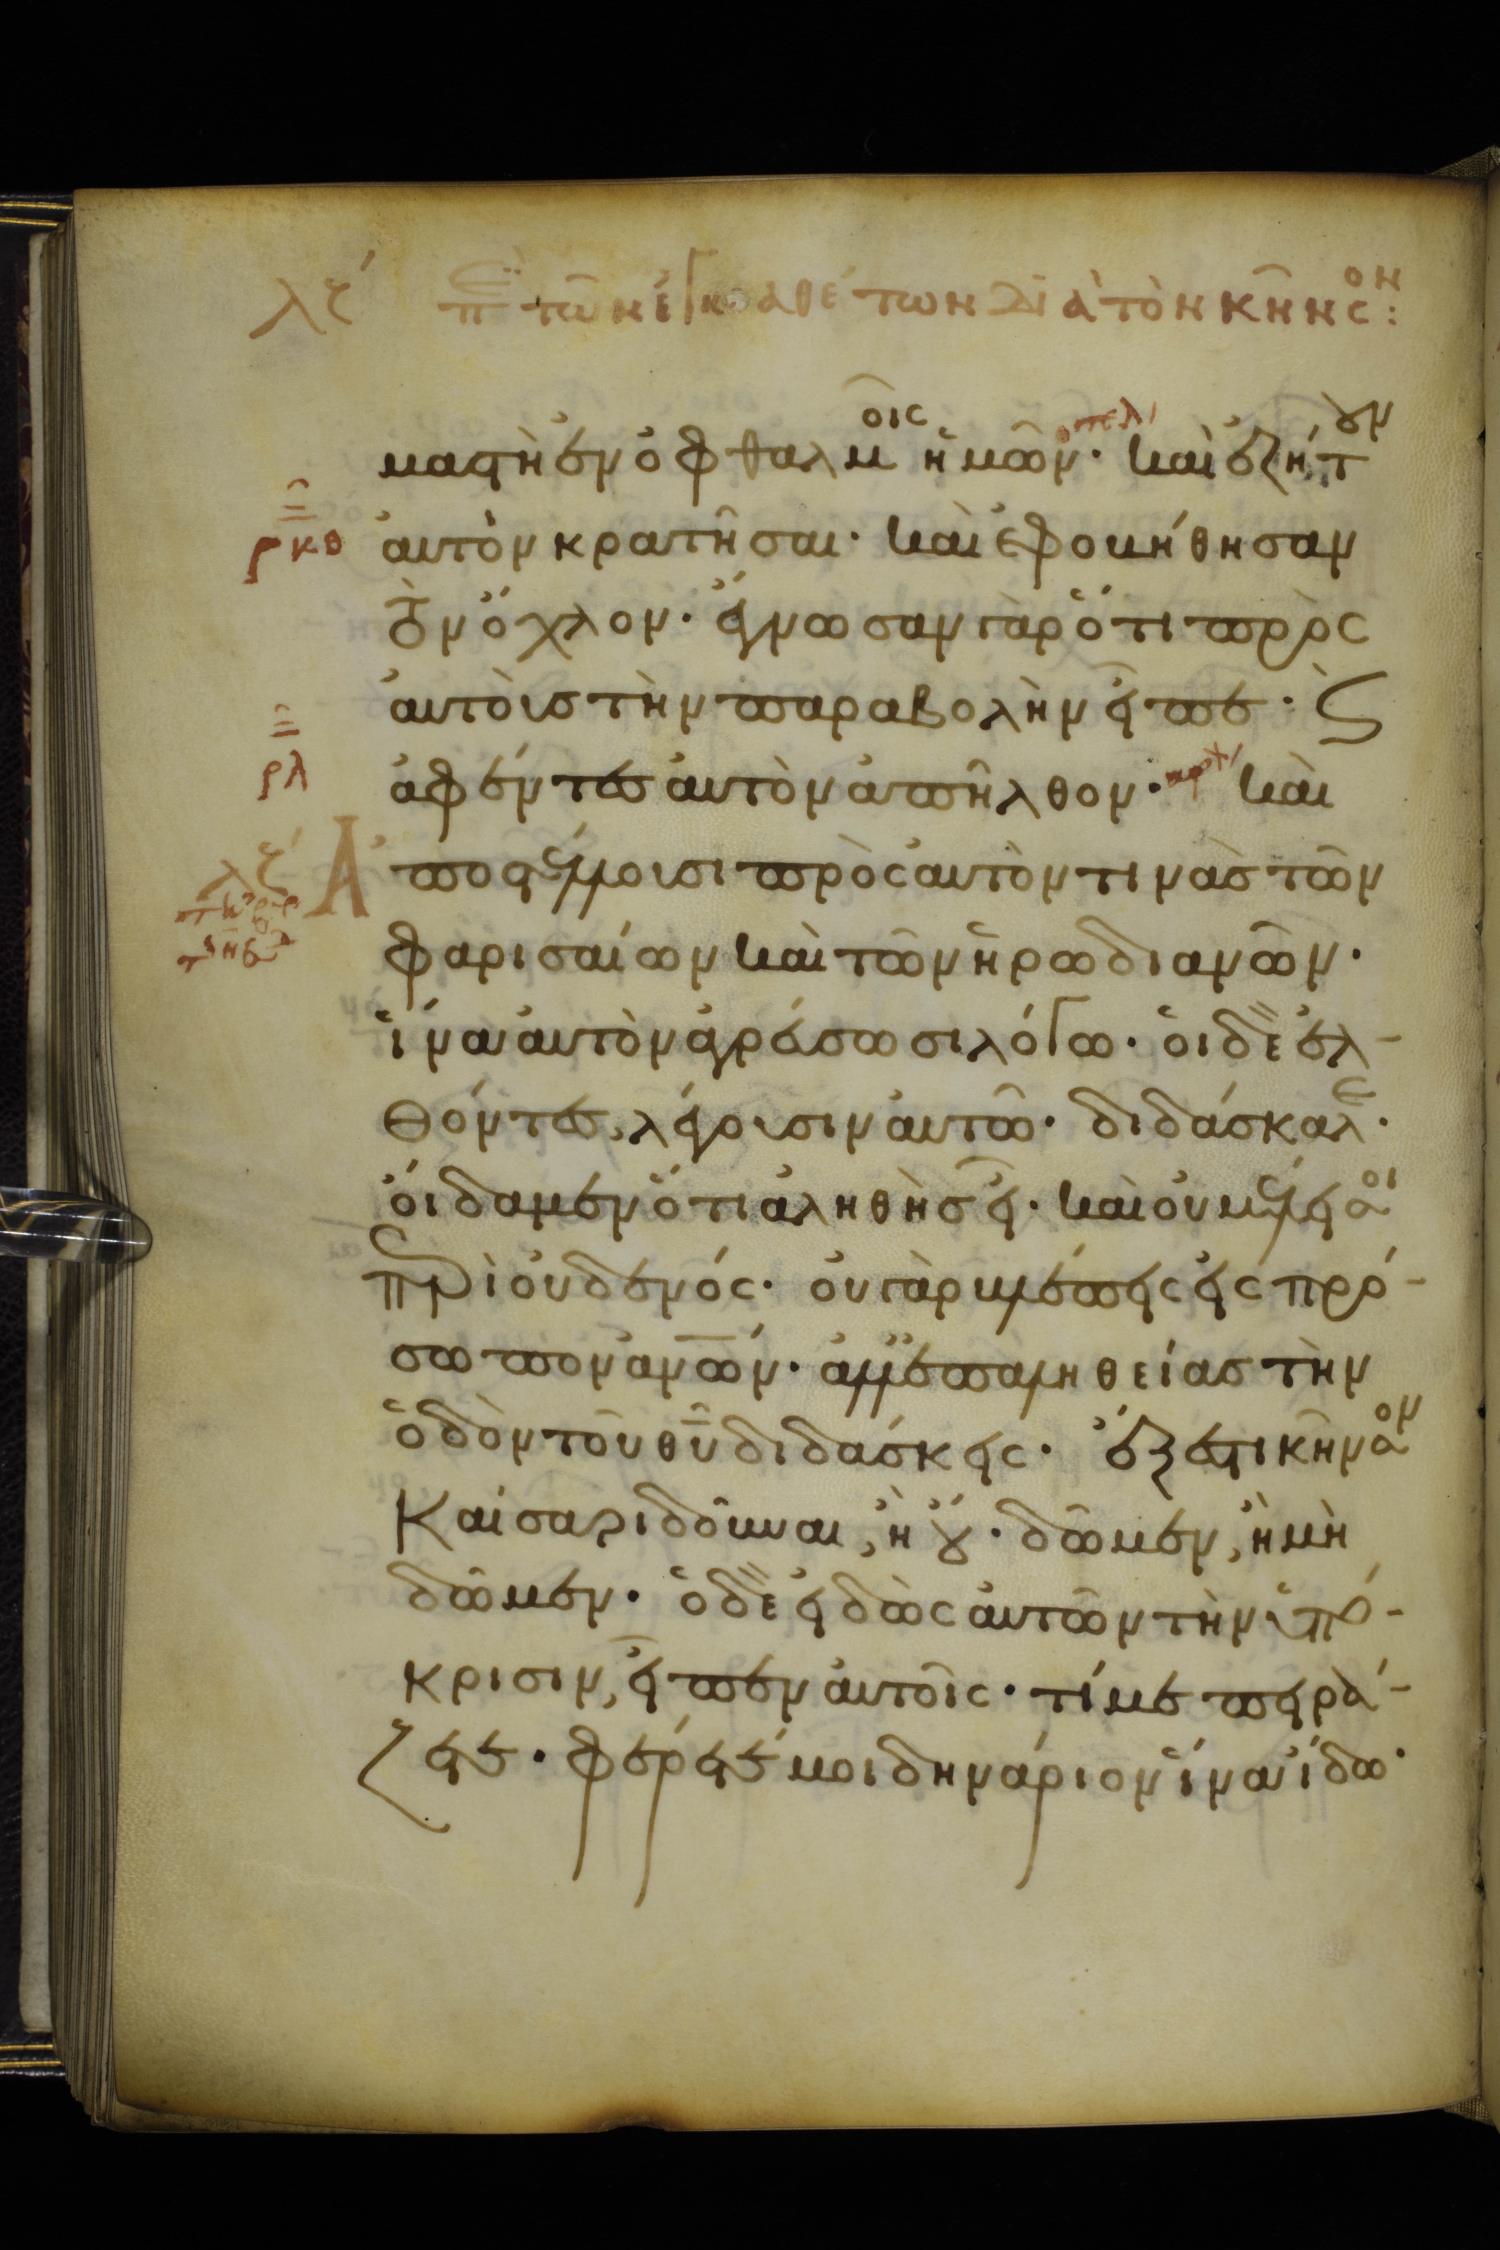 λζ΄ π τῶν ἐγκαθέτων διὰ τὸν κῆνσον:
μαστὴ ἐν ὀφθαλμοῖς ἡμῶν· καὶ ἐζήτουν
ρκθ αὐτὸν κρατῆσαι· καὶ ἐφοβήθησαν
τὸν ὄχλον· ἔγνωσαν γὰρ ὅτι πρὸς
αὐτοὺς τὴν παραβολὴν εἶπε· καὶ
ρλ ἀφέντες αὐτὸν ἀπῆλθον· καὶ
λζ΄ Ἀποστέλλουσι πρὸς αὐτὸν τινὰς τῶν
φαρισαίων καὶ τῶν ἡρωδιανῶν·
ἵνα αὐτὸν ἀγρεύσωσι λόγω· οἱ δὲ ἐλ-
θόντες, λέγουσιν αὐτῶ· διδάσκαλε·
οἴδαμεν ὅτι ἀληθὴς εἶ· καὶ οὐ μέλει σοι
περὶ οὐδενός· οὐ γὰρ βλέπεις εἰς πρό-
σωπον ἀνων· ἀλλ' ἐπ' ἀληθείας τὴν
ὁδὸν τοῦ θυ διδάσκεις· ἔξεστι κῆνσον
Καίσαρι δοῦναι, ἢ οὔ· δῶμεν, ἢ μὴ
δῶμεν· ὁ δὲ εἰδὼς αὐτῶν τὴν ὑπό-
κρισιν, εἶπεν αὐτοῖς· τί με πειρά-
ζετε· φέρετέ μοι δηνάριον ἵνα ἴδω·